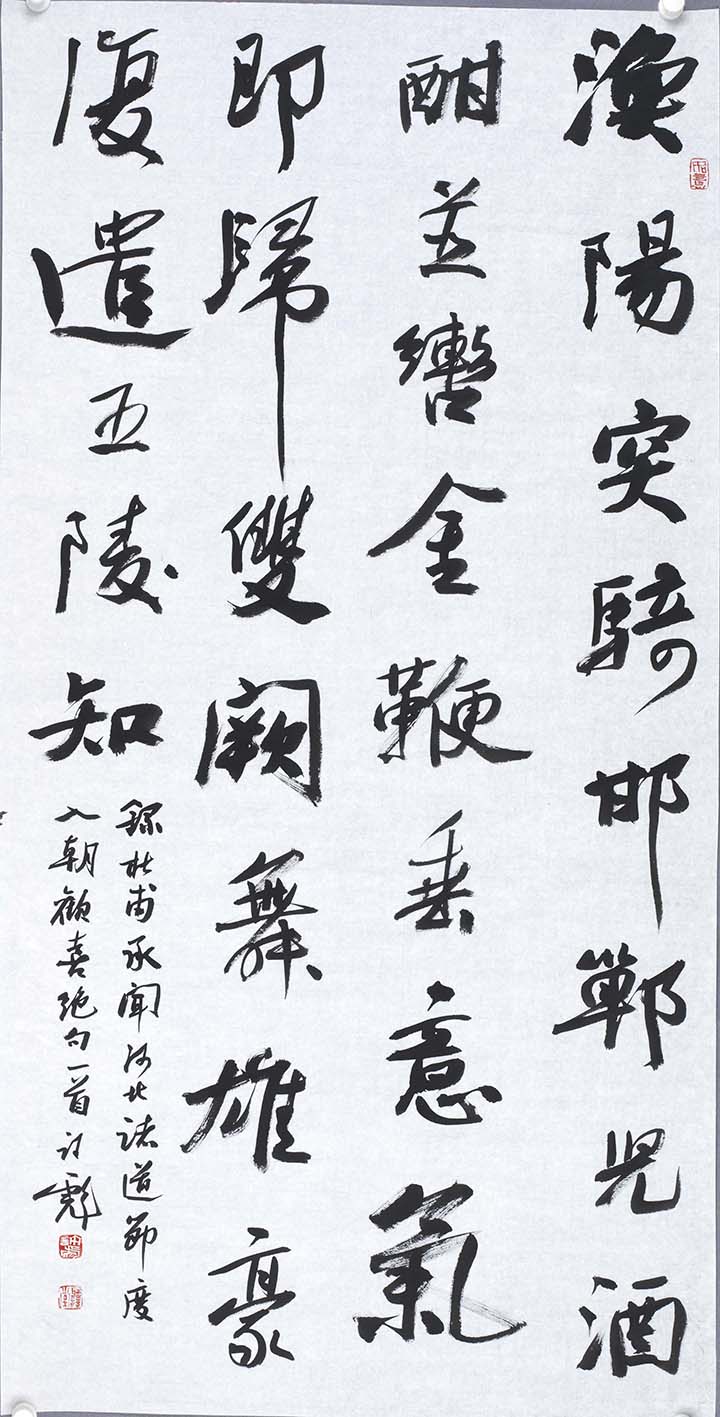 漁陽突騎邯鄲兒酒
酣並轡金鞭垂意氣
即歸雙闕舞雄豪
復遣五陵知
錄杜甫承聞河北諸道節度
入朝歡喜絕句一首